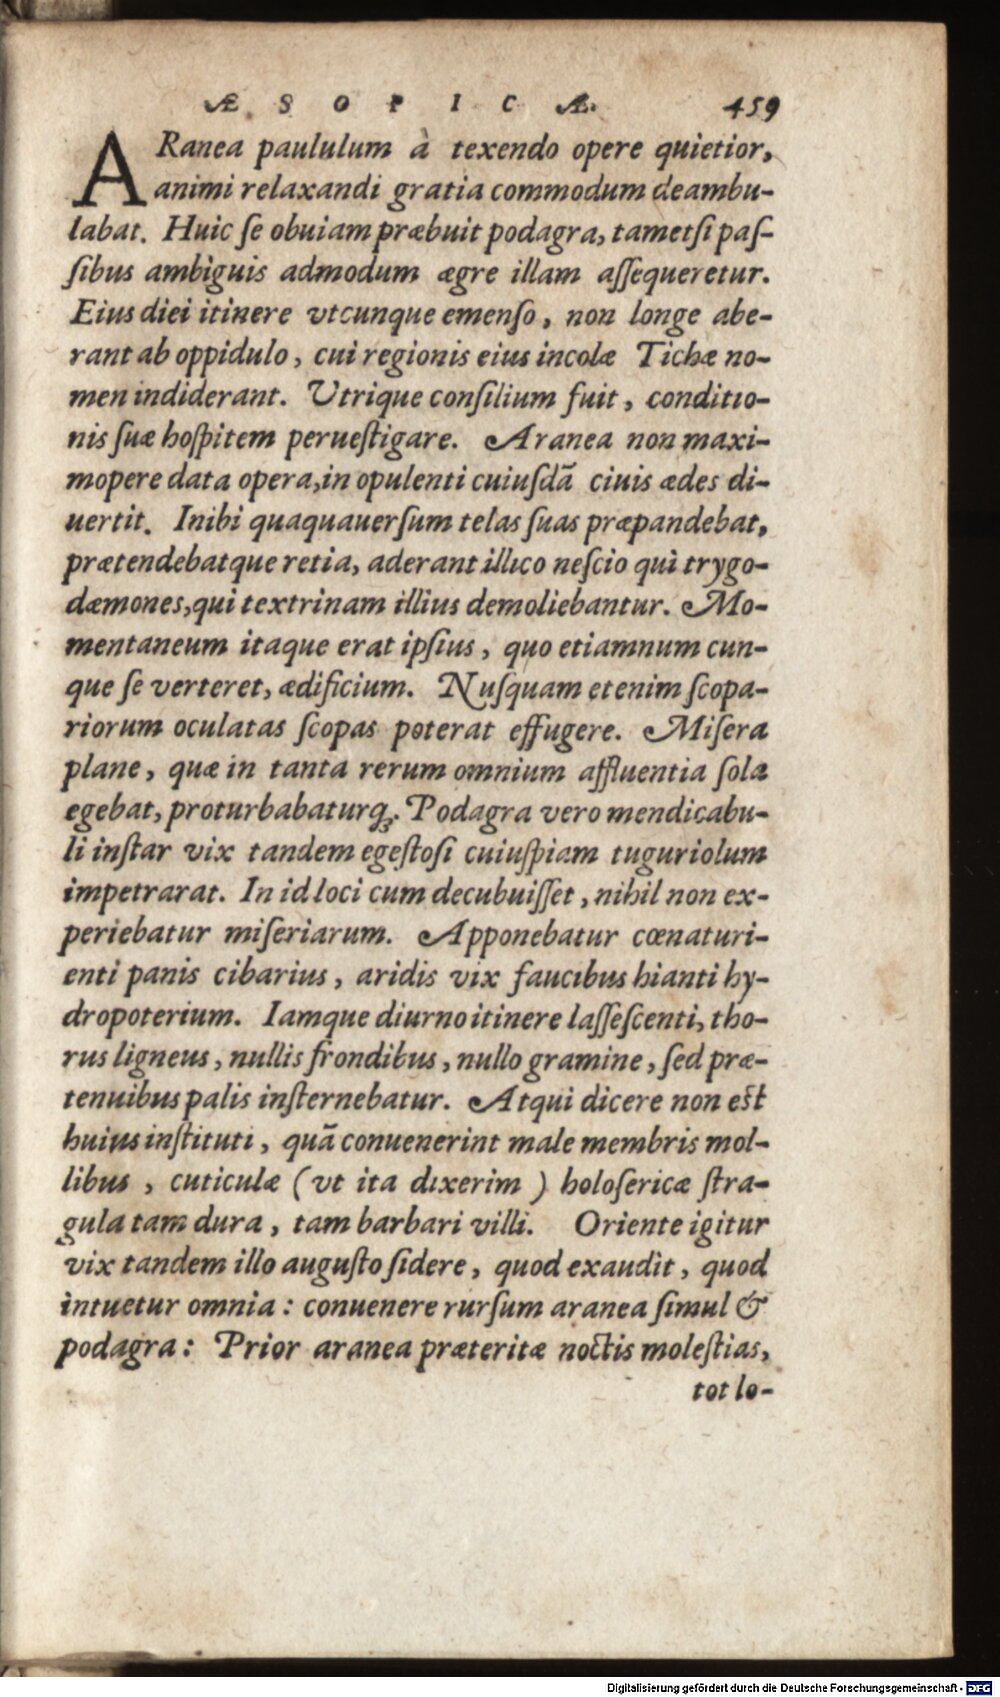 ÆSOPICÆ. 459
ARanea paululum à texendo opere quietior,
animi relaxandi gratia commodum deambu-
labat. Huic ſe obuiam præbuit podagra, tametſi paſ-
ſibus ambiguis admodum ægre illam aſſequeretur.
Eius diei itinere vtcunque emenſo, non longe abe-
rant ab oppidulo, cui regionis eius incolæ Tichæ no-
men indiderant. Vtrique conſilium fuit, conditio-
nis ſuæ hoſpitem perueſtigare. Aranea non maxi-
mopere data opera, in opulenti cuiuſdã ciuis ædes di-
uertit. Inibi quaquauerſum telas ſuas præpandebat,
prætendebatque retia, aderant illico neſcio qui trygo-
dæmones, qui textrinam illius demoliebantur. Mo-
mentaneum itaque erat ipſius, quo etiamnum cun-
que ſe verteret, ædificium. Nuſquam etenim ſcopa-
riorum oculatas ſcopas poterat effugere. Miſera
plane, quæ in tanta rerum omnium affluentia ſola
egebat, proturbabaturq́;. Podagra vero mendicabu-
li inſtar vix tandem egeſtoſi cuiuſpiam tuguriolum
impetrarat. In id loci cum decubuiſſet, nihil non ex-
periebatur miſeriarum. Apponebatur cœnaturi-
enti panis cibarius, aridis vix faucibus hianti hy-
dropoterium. Iamque diurno itinere laſſeſcenti, tho-
rus ligneus, nullis frondibus, nullo gramine, ſed præ-
tenuibus palis inſternebatur. Atqui dicere non eſt
huius inſtituti, quã conuenerint male membris mol-
libus, cuticulæ (vt ita dixerim) holoſericæ ſtra-
gula tam dura, tam barbari villi. Oriente igitur
vix tandem illo auguſto ſidere, quod exaudit, quod
intuetur omnia: conuenere rurſum aranea ſimul &
podagra: Prior aranea præteritæ noctis moleſtias,
tot lo-
Digitalisierung gefördert durch die Deutsche Forschungsgemeinschaft - DFG